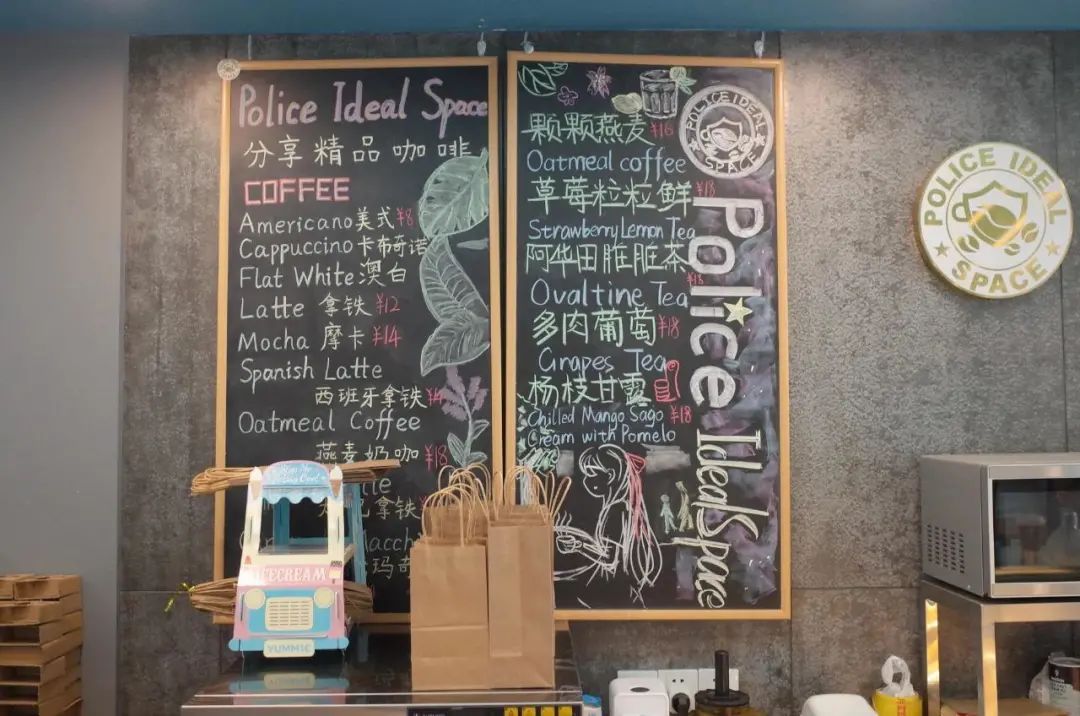 Police Ideal Space
分享精品咖啡
COFFEE
Americano 美式 ¥8
Cappuccino 卡布奇诺
Flat White 澳白
Latte 拿铁 ¥12
Mocha 摩卡 ¥14
Spanish Latte
西班牙拿铁 ¥
Oatmeal Coffee
燕麦奶咖 ¥18
拿铁
颗颗燕麦 ¥16
Oatmeal coffee
草莓粒粒鲜 ¥18
Strawberry Lemon Tea
阿华田脏脏茶
Ovaltine Tea ¥18
多肉葡萄 ¥18
Grapes Tea
杨枝甘露
Chilled Mango Sago ¥18
Cream with Pomelo
POLICE IDEAL
SPACE
Police Ideal Space
POLICE IDEAL
SPACE
ICECREAM
YUMMIE